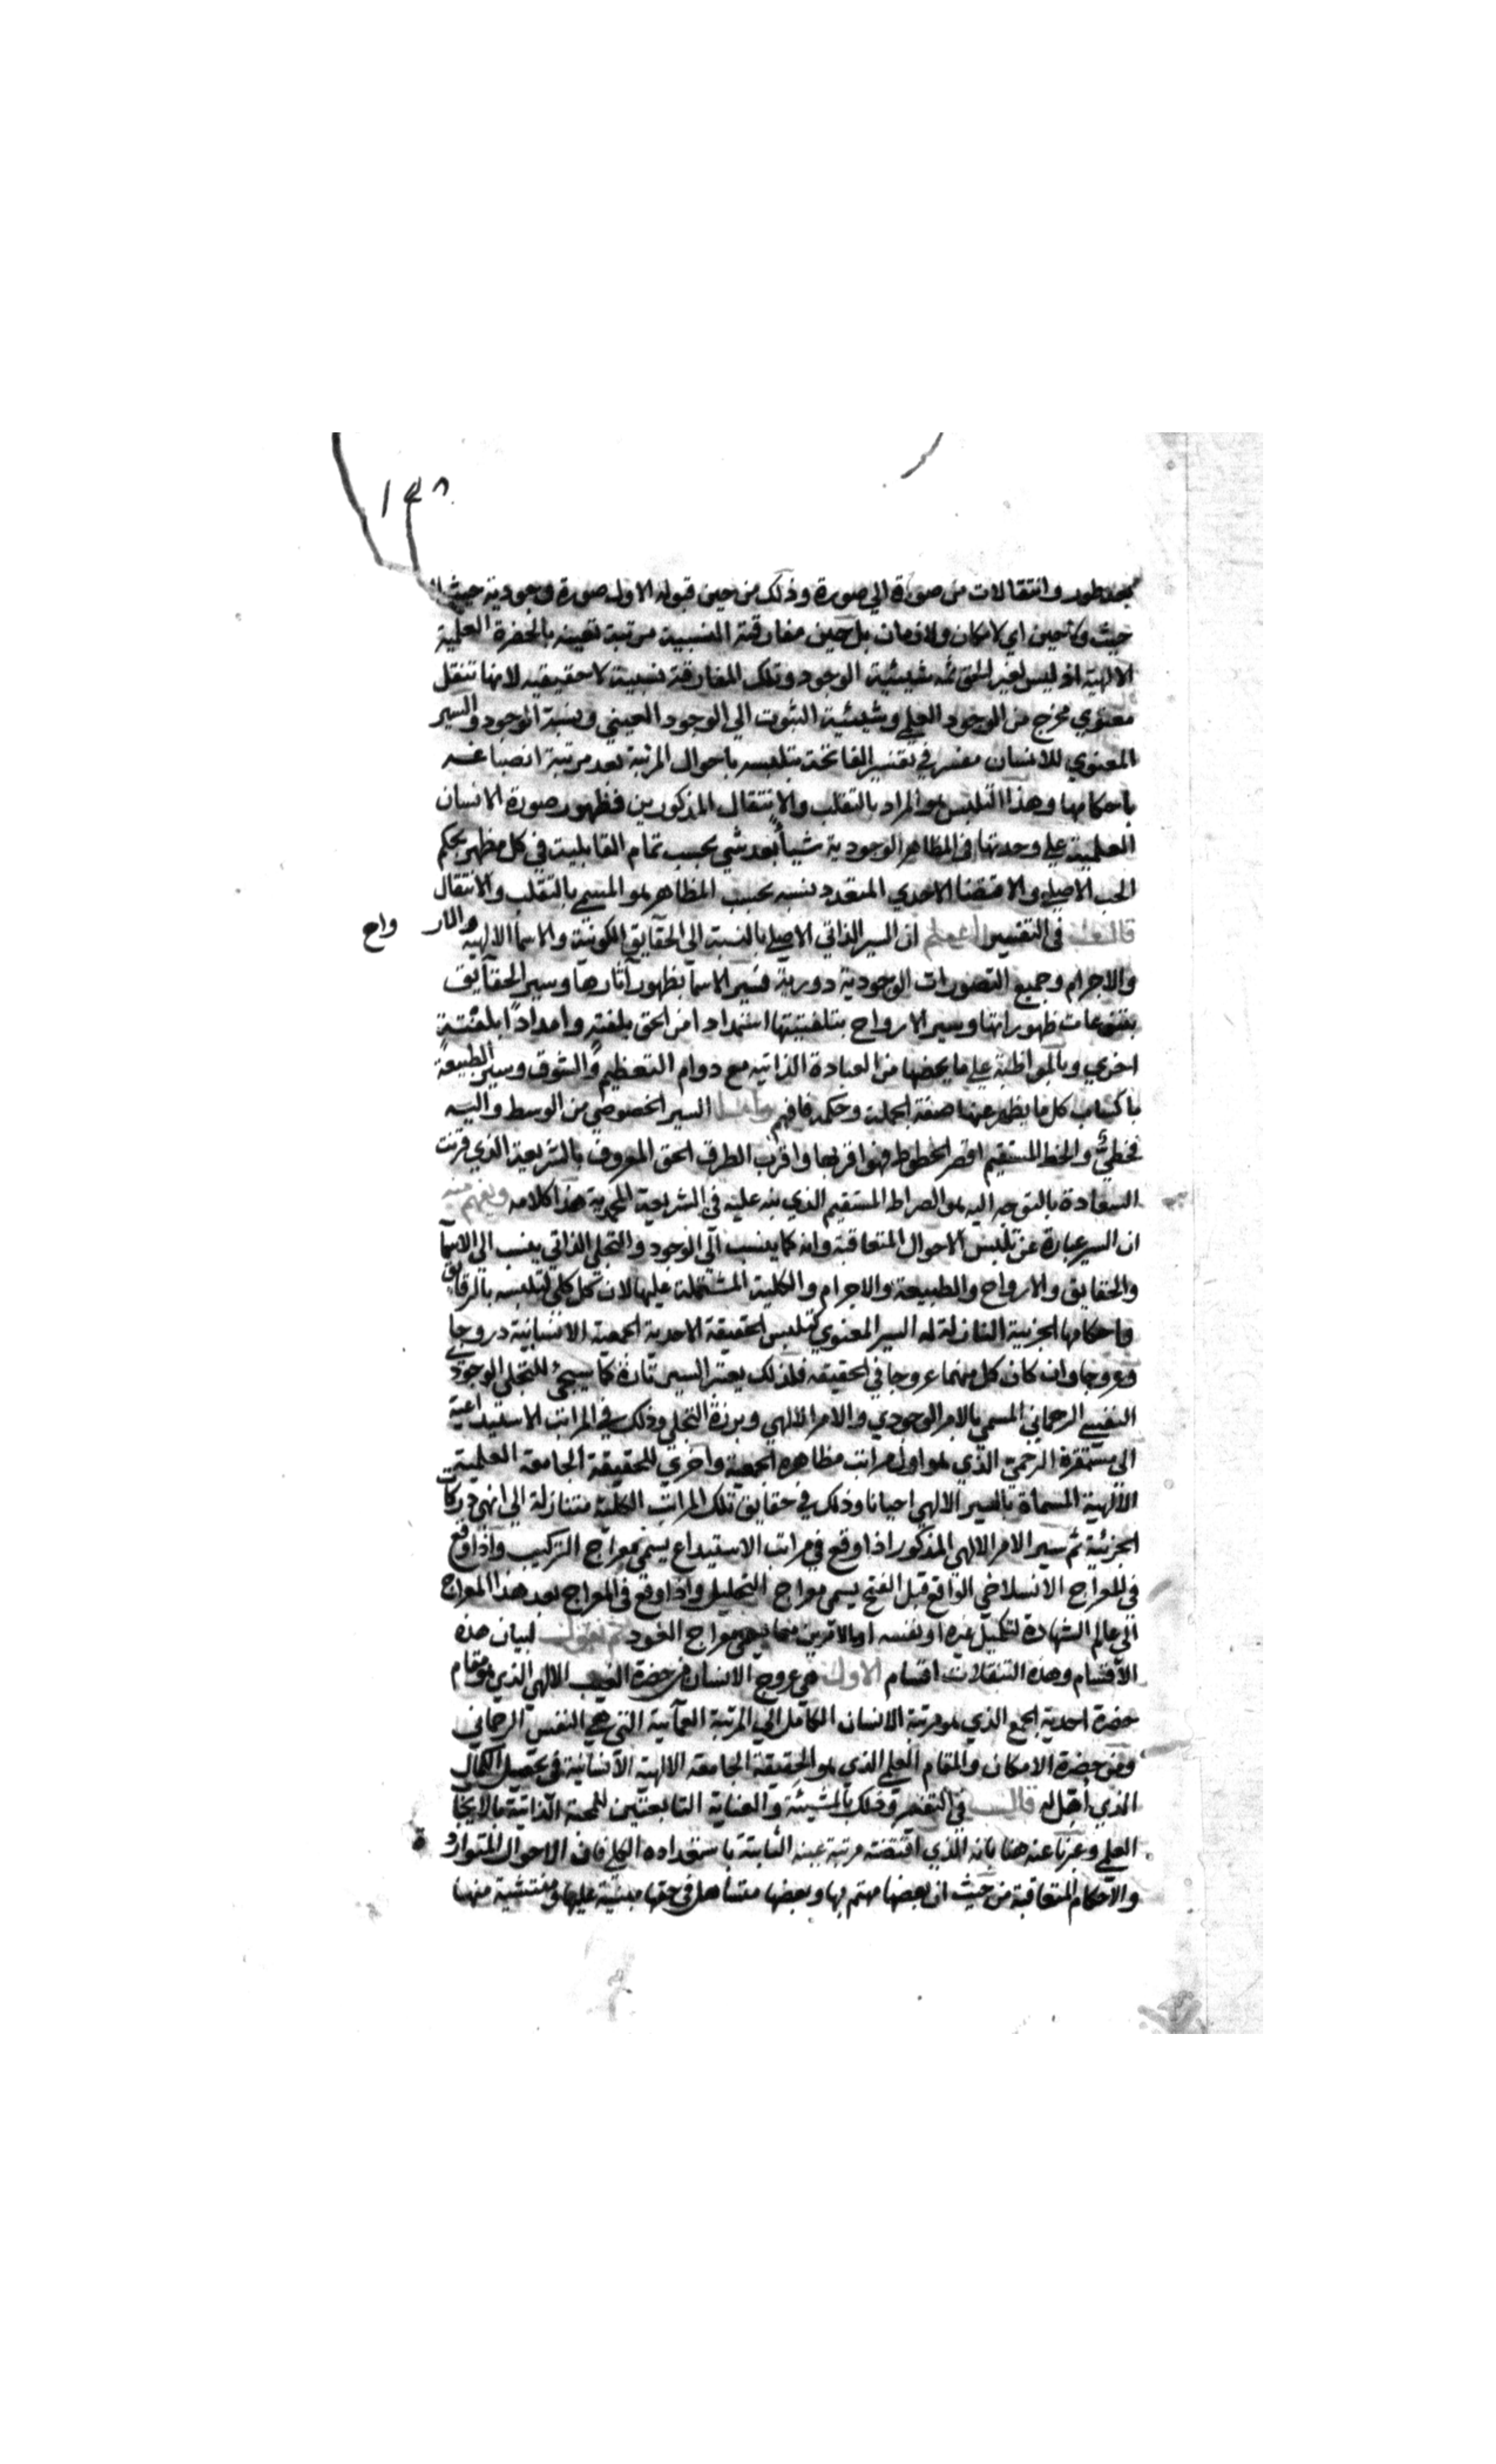 ١٤٨
بعد طور وانتقالات من صورة الي صورة وذلك من حين قبوله الاول صورة وجودية حيث لا
حيث ولا حين اي لا مكان ولا زمان بل حين مفارقته النسبية مرتبة تعينه بالحضرة العلمية
الالهية اذ ليس لغير الحق ثمه شيئية الوجود وتلك المفارقة نسبية لا حقيقيه لانها تنقل
معنوي مخرج من الوجود العلمي وشيئية الثبوت الي الوجود العيني ونسبة الوجود والسير
المعنوي للانسان مفسر في تفسير الفاتحة بتلبسه باحوال المرتبة بعد مرتبة انصباغه
باحكامها وهذا التلبس هو المراد بالتقلب والانتقال المذكورين فظهور صورة الانسان
العلمية علي وحدتها في المظاهر الوجودية شيأ بعد شي بحسب تمام القابلية في كل مظهر بحكم
الحب الاصلي والاقتضا الاحدي المتعدد نسبه بحسب المظاهر هو المسمي بالتقلب والانتقال
قال في التفسير اعلم ان السير الذاتي الاصلي بالنسبة الي الحقآيق الكونية والاسما الالهية والار واح
والاجرام وجميع التصورات الوجودية دورية فسير الاسما بظهور آثارها وسير الحقآيق
بتنوعات ظهوراتها وسير الارواح بتلفتيتها استمدادا من الحق بلفتة وامدادا بلفتة
اخري وبالمواظبة علي ما يخصها من العبادة الذاتيه مع دوام التعظيم والشوق وسير الطبيعة
باكساب كل ما يظهر عنها صفة الجملة وحكمه فافهم واما السير الخصوصي من الوسط واليه
فخطيّ والخط المستقيم اقصر الخطوط فهو اقربها واقرب الطرق الحق المعروف بالشريعة الذي قرنت
السعادة بالتوجه اليه هو الصراط المستقيم الذي نبه عليه في الشريعة المحمدية هذا كلامه ويفهم منه
ان السير عبارة عن تلبس الاحوال المتعاقبة وانه كما ينسب الي الوجود والتجلي الذاتي ينسب الي الاسما
والحقايق والارواح والطبيعة والاجرام والكلية المشتملة عليها لان كل كلي لتلبسه بالرقايق
واحكامها الجزيية النازلة له السير المعنوي كتلبس الحقيقة الاحدية الجمعية الانسانية دروجا
وعروجا وان كان كل منهما عروجا في الحقيقه فلذلك يعتبر السير تارة كما سيجئ للتجلي الوجودي
النفسي الرحماني المسمي بالامر الوجودي والامر الالهي وبرزة التجلي وذلك في المراتب الاستيداعية
الي مستقره الرحمي الذي هو اول مراتب مظاهره الجمعية واخري للحقيقة الجامعة العلمية
الالهية المسماة بالسير الالهي احيانا وذلك في حقايق تلك المراتب الكلية متنازلة الي انهي دركات
الجزئية ثم سير الامر الالهي المذكور اذا وقع في مراتب الاستيداع يسمي معراج التركيب واذا وقع
في المعراج الانسلاخي الواقع قبل الفتح يسمي معراج التحليل واذا وقع في المعراج بعد هذا المعراج
الي عالم الشهادة لتكميل غيره او نفسه او بالامرين معا يسمي معراج العود ثم نقول لبيان هذه
الاقسام وهذه التنقلات اقسام الاول هي عروج الانسان من حضرة الغيب الالهي الذي هو مقام
حضرة احدية الجمع الذي هو مرتبة الانسان الكامل الي المرتبة العمآيية التي هي النفس الرحماني
ومن حضرة الامكان والمقام العلمي الذي هو الحقيقة الجامعة الالهية الانسانية في تحصيل الكمال
الذي اهل له قال في التفسير وذلك بالمشيئة والعناية التابعتين للمحبة الذاتية بالايجا
العلمي وعبر عنه هنا بانه الذي اقتضته مرتبة عينه الثابتة باستعداده الكلي فان الاحوال المتواردة
والاحكام المتعاقبة من حيث ان بعضها مهتم بها وبعضها متساهل في حقها مبنية عليها ومنتشية منها